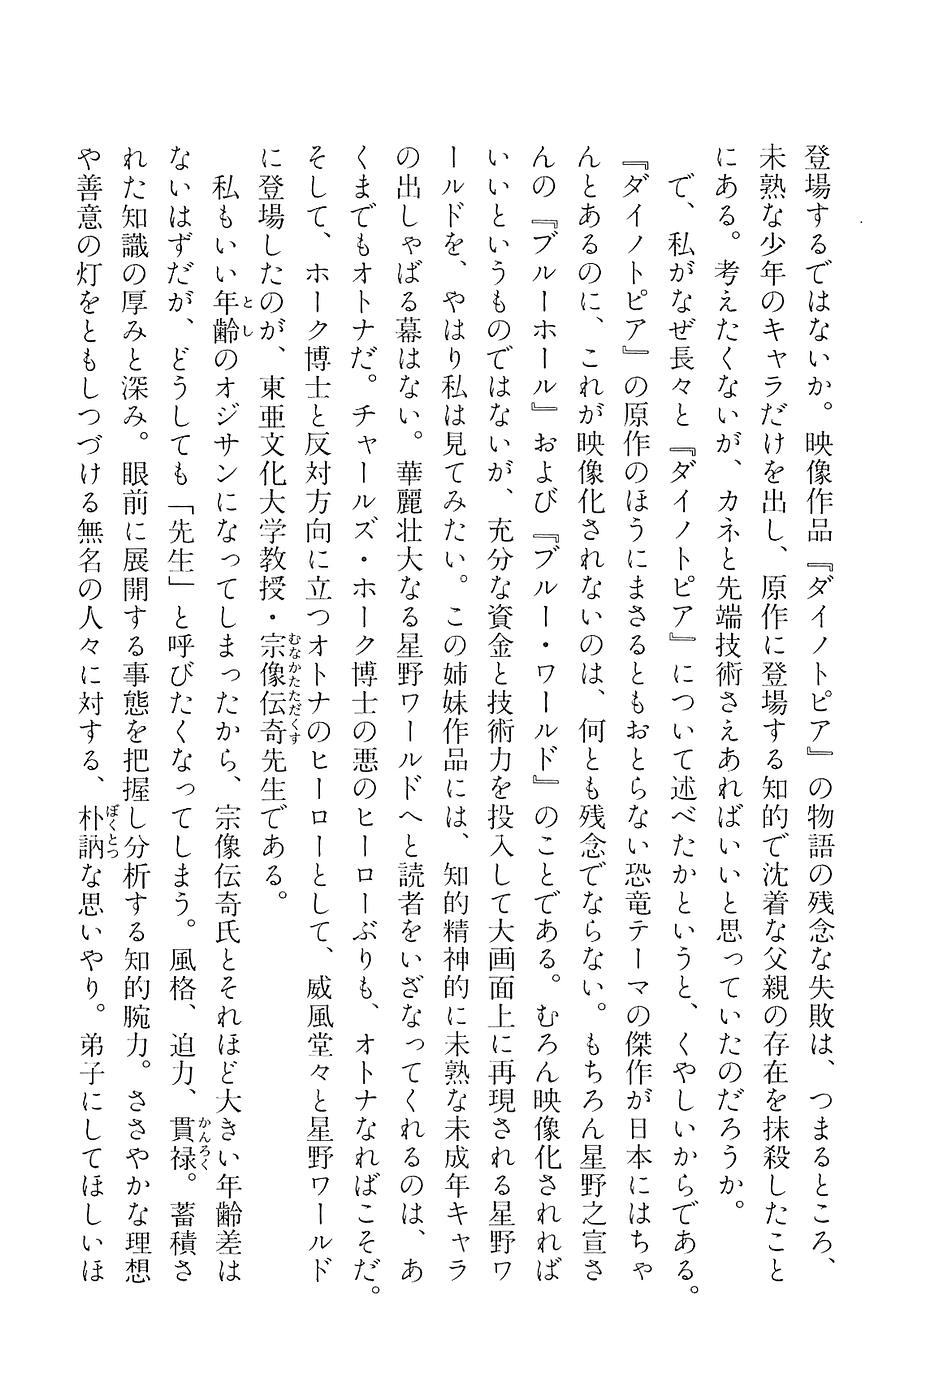 登場するではないか。映像作品『ダイノトピア』の物語の残念な失敗は、つまるところ、
未熟な少年のキャラだけを出し、原作に登場する知的で沈着な父親の存在を抹殺したこと
にある。考えたくないが、カネと先端技術さえあればいいと思っていたのだろうか。
　で、私がなぜ長々と『ダイノトピア』について述べたかというと、くやしいからである。
『ダイノトピア』の原作のほうにまさるともおとらない恐竜テーマの傑作が日本にはちゃ
んとあるのに、これが映像化されないのは、何とも残念でならない。もちろん星野之宣さ
んの『ブルーホール』および『ブルー・ワールド』のことである。むろん映像化されれば
いいというものではないが、充分な資金と技術力を投入して大画面上に再現される星野ワ
ールドを、やはり私は見てみたい。この姉妹作品には、知的精神的に未熟な未成年キャラ
の出しゃばる幕はない。華麗壮大なる星野ワールドへと読者をいざなってくれるのは、あ
くまでもオトナだ。チャールズ・ホーク博士の悪のヒーローぶりも、オトナなればこそだ。
そして、ホーク博士と反対方向に立つオトナのヒーローとして、威風堂々と星野ワールド
に登場したのが、東亜文化大学教授・宗像伝奇先生である。
　私もいい年齢のオジサンになってしまったから、宗像伝奇氏とそれほど大きい年齢差は
ないはずだが、どうしても「先生」と呼びたくなってしまう。風格、迫力、貫禄。蓄積さ
れた知識の厚みと深み。眼前に展開する事態を把握し分析する知的腕力。ささやかな理想
や善意の灯をともしつづける無名の人々に対する、朴訥な思いやり。弟子にしてほしいほ